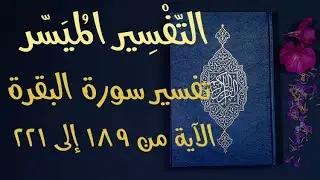 التَّفْسِير المُيَسَّر
تفسير سورة البقرة
الآية من ١٨٩ إلى ٢٢١